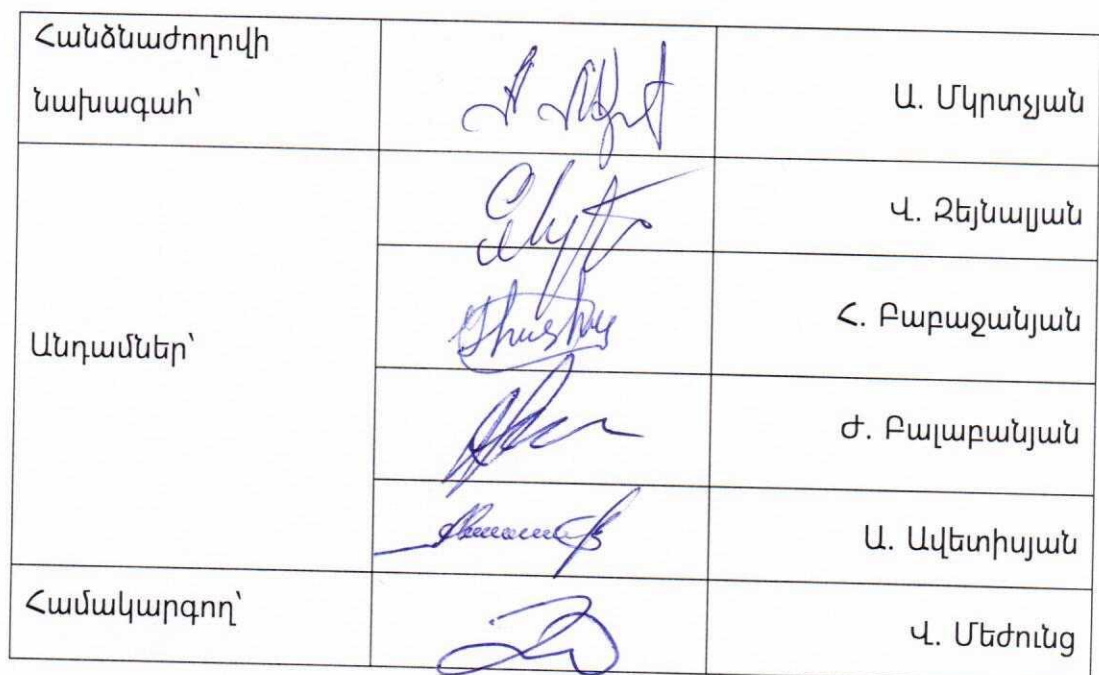 Հանձնաժողովի
նախագահ՝
Ա. Մկրտչյան
Վ. Զեյնալյան
Անդամներ՝
Հ. Բաբաջանյան
Ժ. Բալաբանյան
Ա. Ավետիսյան
Համակարգող՝
Վ. Մեժունց